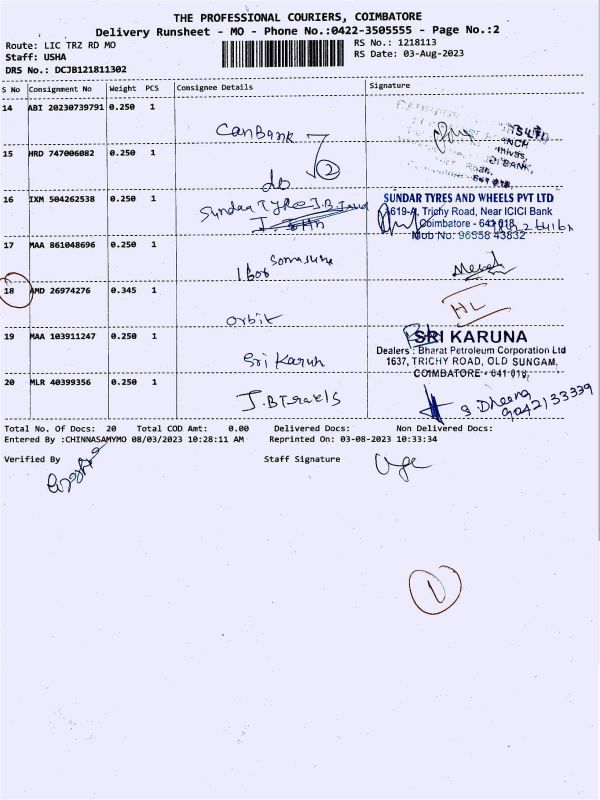 THE PROFESSIONAL COURIERS, COIMBATORE
Delivery Runsheet - MO - Phone No.:0422-3505555 - Page No.:2
Route: LIC TRZ RD MO
RS No.: 1218113
Staff: USHA
RS Date: 03-Aug-2023
DRS No.: DCJB121811302
S No Consignment No Weight PCS Consignee Details Signature
14 ABI 20230739791 0.250 1
CanBank
15 HRD 747006082 0.250 1
2
do
16 IXM 504262538 0.250 1
Sundar Tyre
SUNDAR TYRES AND WHEELS PVT LTD
619-A, Trichy Road, Near ICICI Bank
Coimbatore - 641 018
Mob No: 96558 43832
17 MAA 861048696 0.250 1
18 AMD 26974276 0.345 1
Orbit
HL
19 MAA 103911247 0.250 1
Sri Karun
SRI KARUNA
Dealers : Bharat Petroleum Corporation Ltd
1637, TRICHY ROAD, OLD SUNGAM,
COIMBATORE - 641 018,
20 MLR 40399356 0.250 1
J.B Travels
S. Dheena
9042133339
Total No. Of Docs: 20 Total COD Amt: 0.00 Delivered Docs: Non Delivered Docs:
Entered By :CHINNASAMYMO 08/03/2023 10:28:11 AM Reprinted On: 03-08-2023 10:33:34
Verified By Staff Signature
1